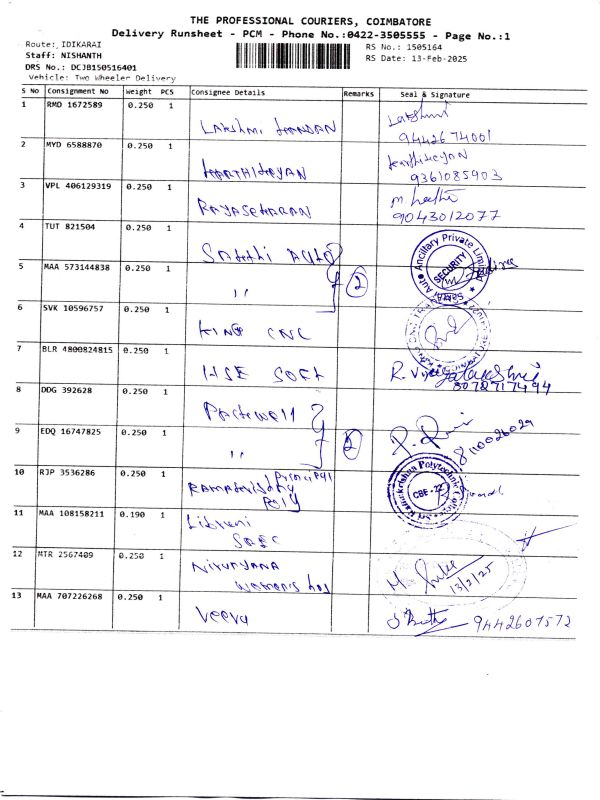 THE PROFESSIONAL COURIERS, COIMBATORE
Delivery Runsheet - PCM - Phone No.:0422-3505555 - Page No.:1
Route: IDIKARAI
RS No.: 1505164
Staff: NISHANTH
RS Date: 13-Feb-2025
DRS No.: DCJB150516401
Vehicle: Two Wheeler Delivery
S No Consignment No Weight PCS Consignee Details Remarks Seal & Signature
1 RMD 1672589 0.250 1 Lakshmi
9442674001
2 MYD 6588870 0.250 1
9361085903
3 VPL 406129319 0.250 1
9043012077
4 TUT 821504 0.250 1 Sakthi Auto
Sakthi Auto Ancillary Private Limited
SECURITY
5 MAA 573144838 0.250 1 " 2
6 SVK 10596757 0.250 1 KING CNC
7 BLR 4800824815 0.250 1 HSE SOFT
8078717494
8 DDG 392628 0.250 1
9 EDQ 16747825 0.250 1 " 2
8110026029
10 RJP 3536286 0.250 1 Principal
Poly
Sri Ramakrishna Polytechnic College
CBE-22
11 MAA 108158211 0.190 1
12 MTR 2567409 0.250 1
Women's hos
13/2/25
13 MAA 707226268 0.250 1 Veeru
9442607572